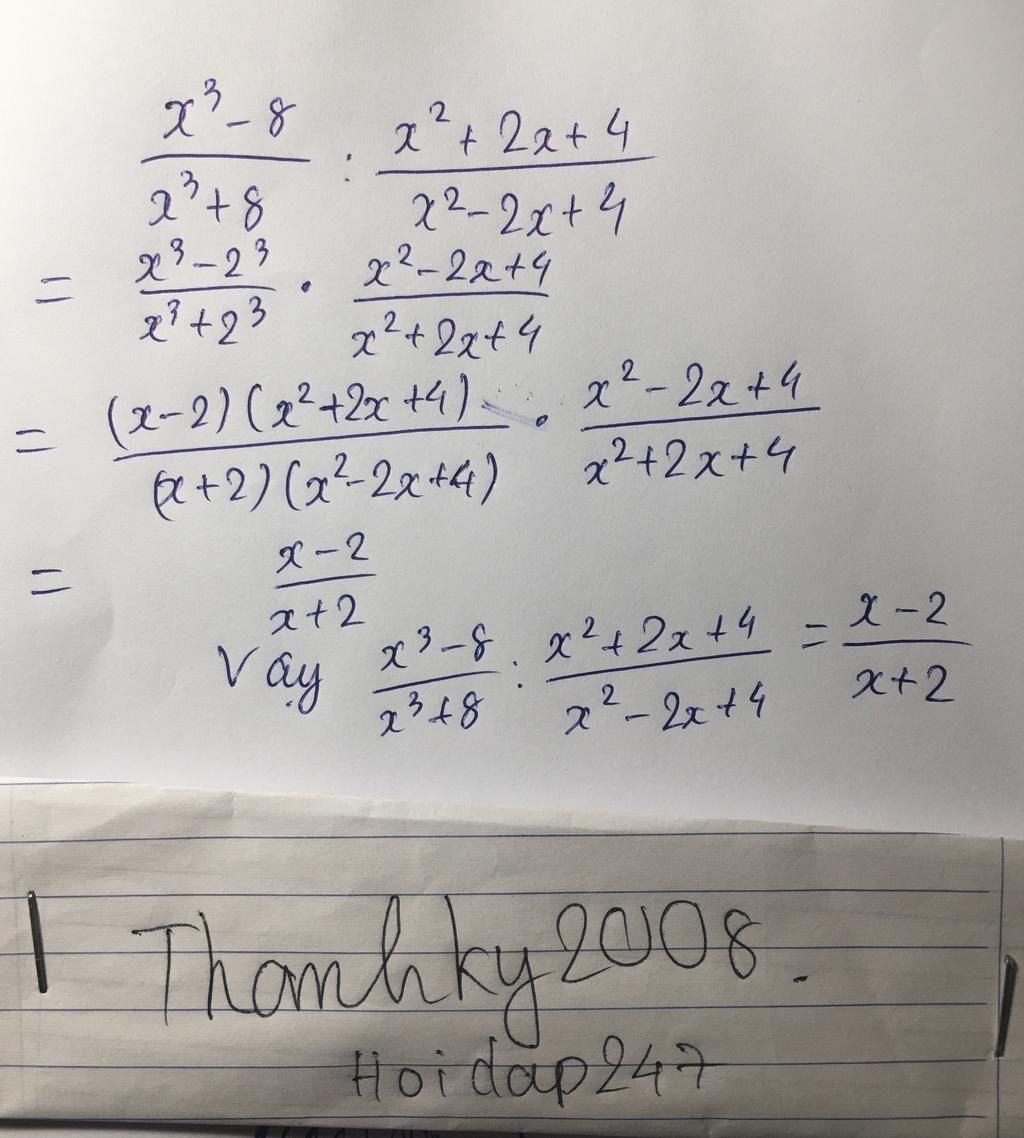 x³ - 8 / x³ + 8 : x² + 2x + 4 / x² - 2x + 4
= x³ - 2³ / x³ + 2³ . x² - 2x + 4 / x² + 2x + 4
= (x - 2)(x² + 2x + 4) / (x + 2)(x² - 2x + 4) . x² - 2x + 4 / x² + 2x + 4
= x - 2 / x + 2
Vậy x³ - 8 / x³ + 8 : x² + 2x + 4 / x² - 2x + 4 = x - 2 / x + 2
Thanhky2008.
Hoidap247